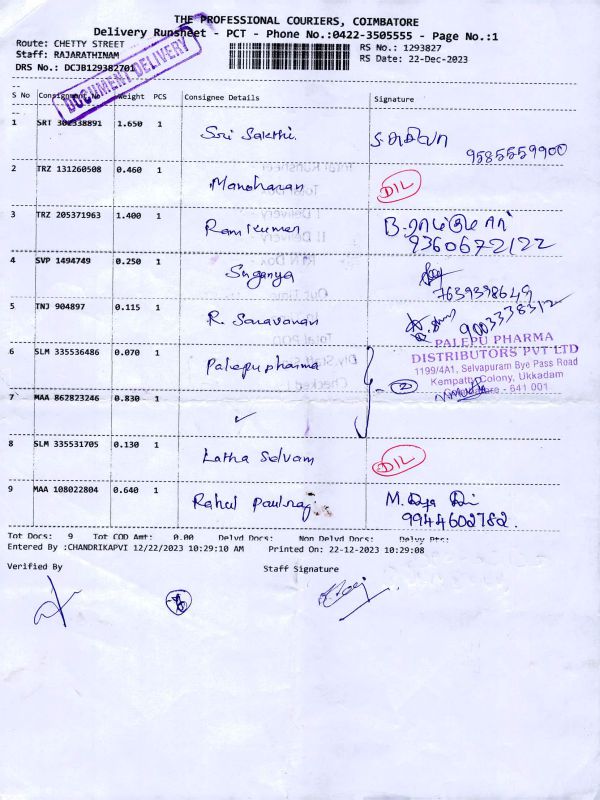 THE PROFESSIONAL COURIERS, COIMBATORE
Delivery Runsheet - PCT - Phone No.:0422-3505555 - Page No.:1
Route: CHETTY STREET
RS No.: 1293827
Staff: RAJARATHINAM
RS Date: 22-Dec-2023
DRS No.: DCJB129382701
DOCUMENT DELIVERY
S No Consignment No Weight PCS Consignee Details Signature
1 SRT 302338891 1.650 1 Sri Sakthi.
9585559900
2 TRZ 131260508 0.460 1 Manoharan DIL
3 TRZ 205371963 1.400 1 Ramkumar
9360672122
4 SVP 1494749 0.250 1 Suganya
7639398649
5 TNJ 904897 0.115 1 R. Saravanan 9003338312
6 SLM 335536486 0.070 1 Palepu pharma
PALEPU PHARMA
DISTRIBUTORS PVT LTD
1199/4A1, Selvapuram Bye Pass Road
Kempatty Colony, Ukkadam
- 641 001
- 2
7 MAA 862823246 0.830 1 ✓
8 SLM 335531705 0.130 1 Latha Selvam DIL
9 MAA 108022804 0.640 1 Rahul Paulraj
9944602782.
Tot Docs: 9 Tot COD Amt: 0.00 Delvd Docs: Non Delvd Docs: Delvy Ptc:
Entered By :CHANDRIKAPVI 12/22/2023 10:29:10 AM Printed On: 22-12-2023 10:29:08
Verified By Staff Signature